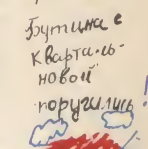 Бутина с
Кварталь-
новой
поругились